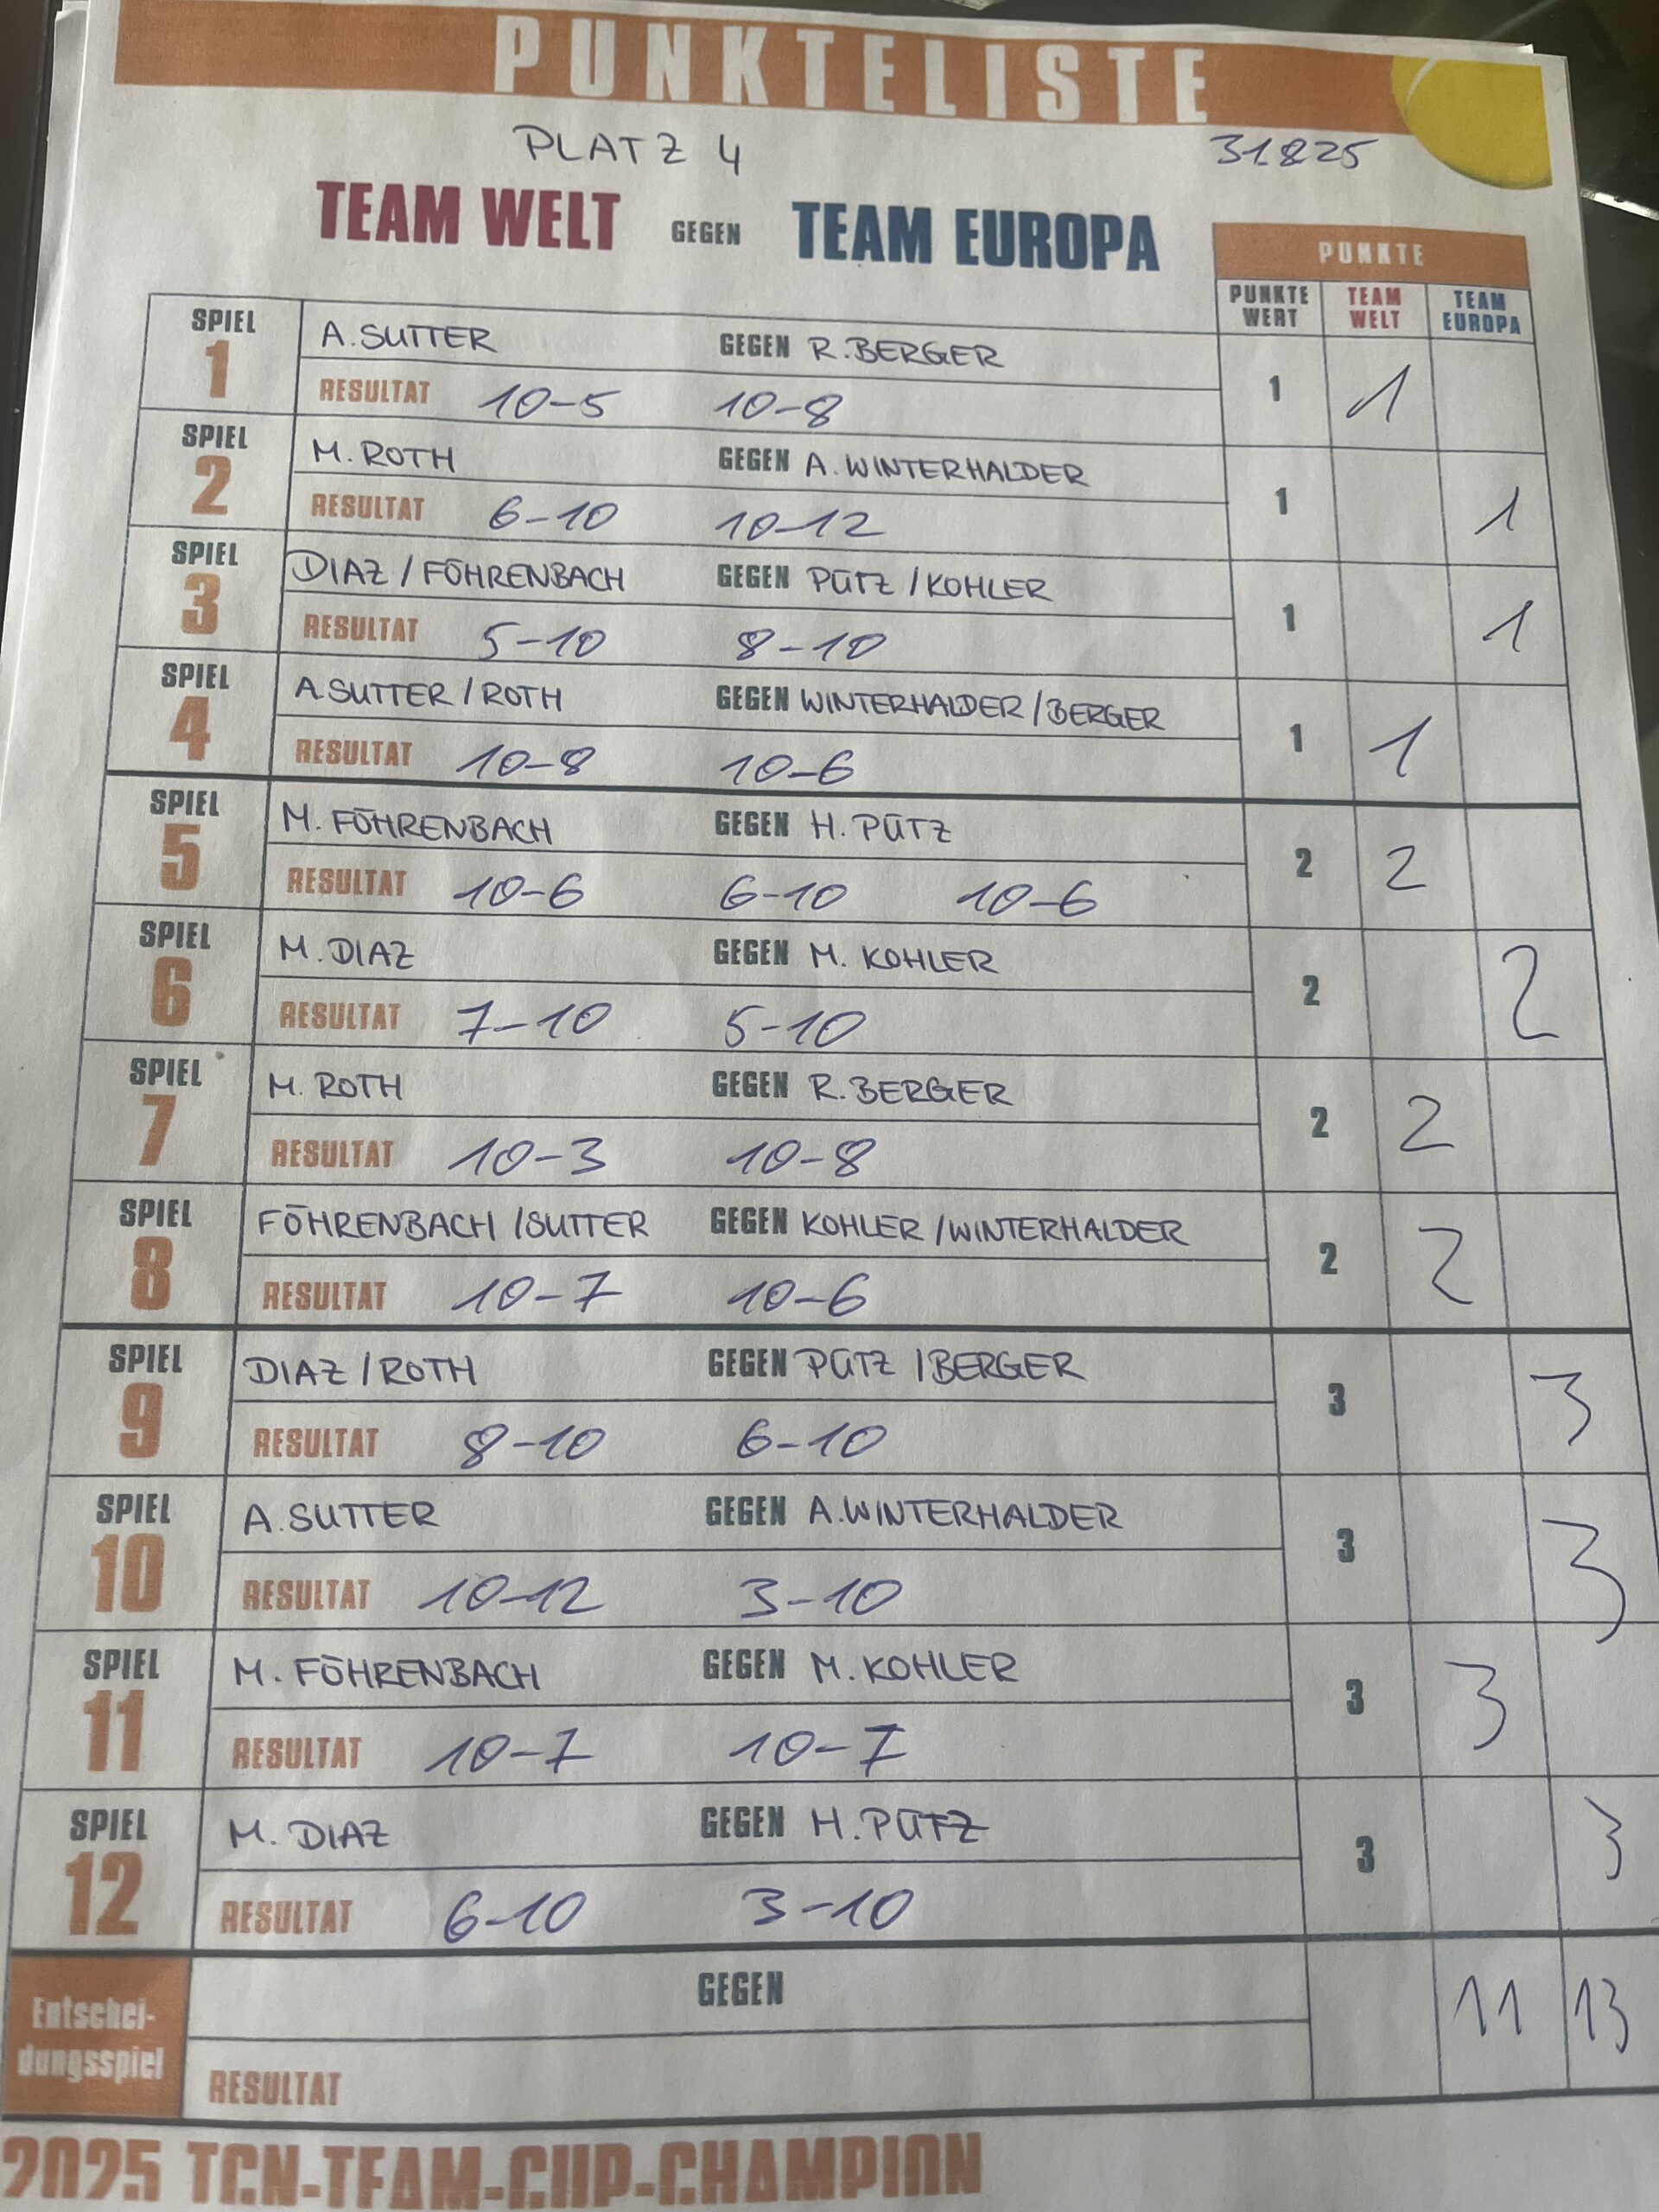 PUNKTELISTE
PLATZ 4 31.8.25
TEAM WELT GEGEN TEAM EUROPA
PUNKTE
PUNKTE WERT TEAM WELT TEAM EUROPA
SPIEL 1 A. SUTTER GEGEN R. BERGER
RESULTAT 10-5 10-8 1 1
SPIEL 2 M. ROTH GEGEN A. WINTERHALDER
RESULTAT 6-10 10-12 1 1
SPIEL 3 DIAZ / FÖHRENBACH GEGEN PÜTZ / KOHLER
RESULTAT 5-10 8-10 1 1
SPIEL 4 A.SUTTER / ROTH GEGEN WINTERHALDER / BERGER
RESULTAT 10-8 10-6 1 1
SPIEL 5 M. FÖHRENBACH GEGEN H. PÜTZ
RESULTAT 10-6 6-10 10-6 2 2
SPIEL 6 M. DIAZ GEGEN M. KOHLER
RESULTAT 7-10 5-10 2 2
SPIEL 7 M. ROTH GEGEN R. BERGER
RESULTAT 10-3 10-8 2 2
SPIEL 8 FÖHRENBACH / SUTTER GEGEN KOHLER / WINTERHALDER
RESULTAT 10-7 10-6 2 2
SPIEL 9 DIAZ / ROTH GEGEN PÜTZ / BERGER
RESULTAT 8-10 6-10 3 3
SPIEL 10 A. SUTTER GEGEN A. WINTERHALDER
RESULTAT 10-12 3-10 3 3
SPIEL 11 M. FÖHRENBACH GEGEN M. KOHLER
RESULTAT 10-7 10-7 3 3
SPIEL 12 M. DIAZ GEGEN H. PÜTZ
RESULTAT 6-10 3-10 3 3
Entschei-
dungsspiel GEGEN 11 13
RESULTAT
2025 TCN-TEAM-CUP-CHAMPION